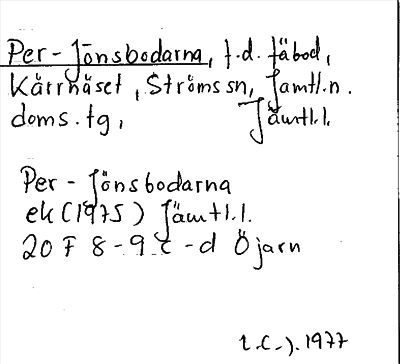 Per-Jönsbodarna, f.d. fäbod,
Kärrnäset, Ströms sn, Jämtl. n.
doms. tg, Jämtl. l.
Per-Jönsbodarna
ek (1975) Jämtl. l.
20 F 8-9 c-d Öjarn
1977